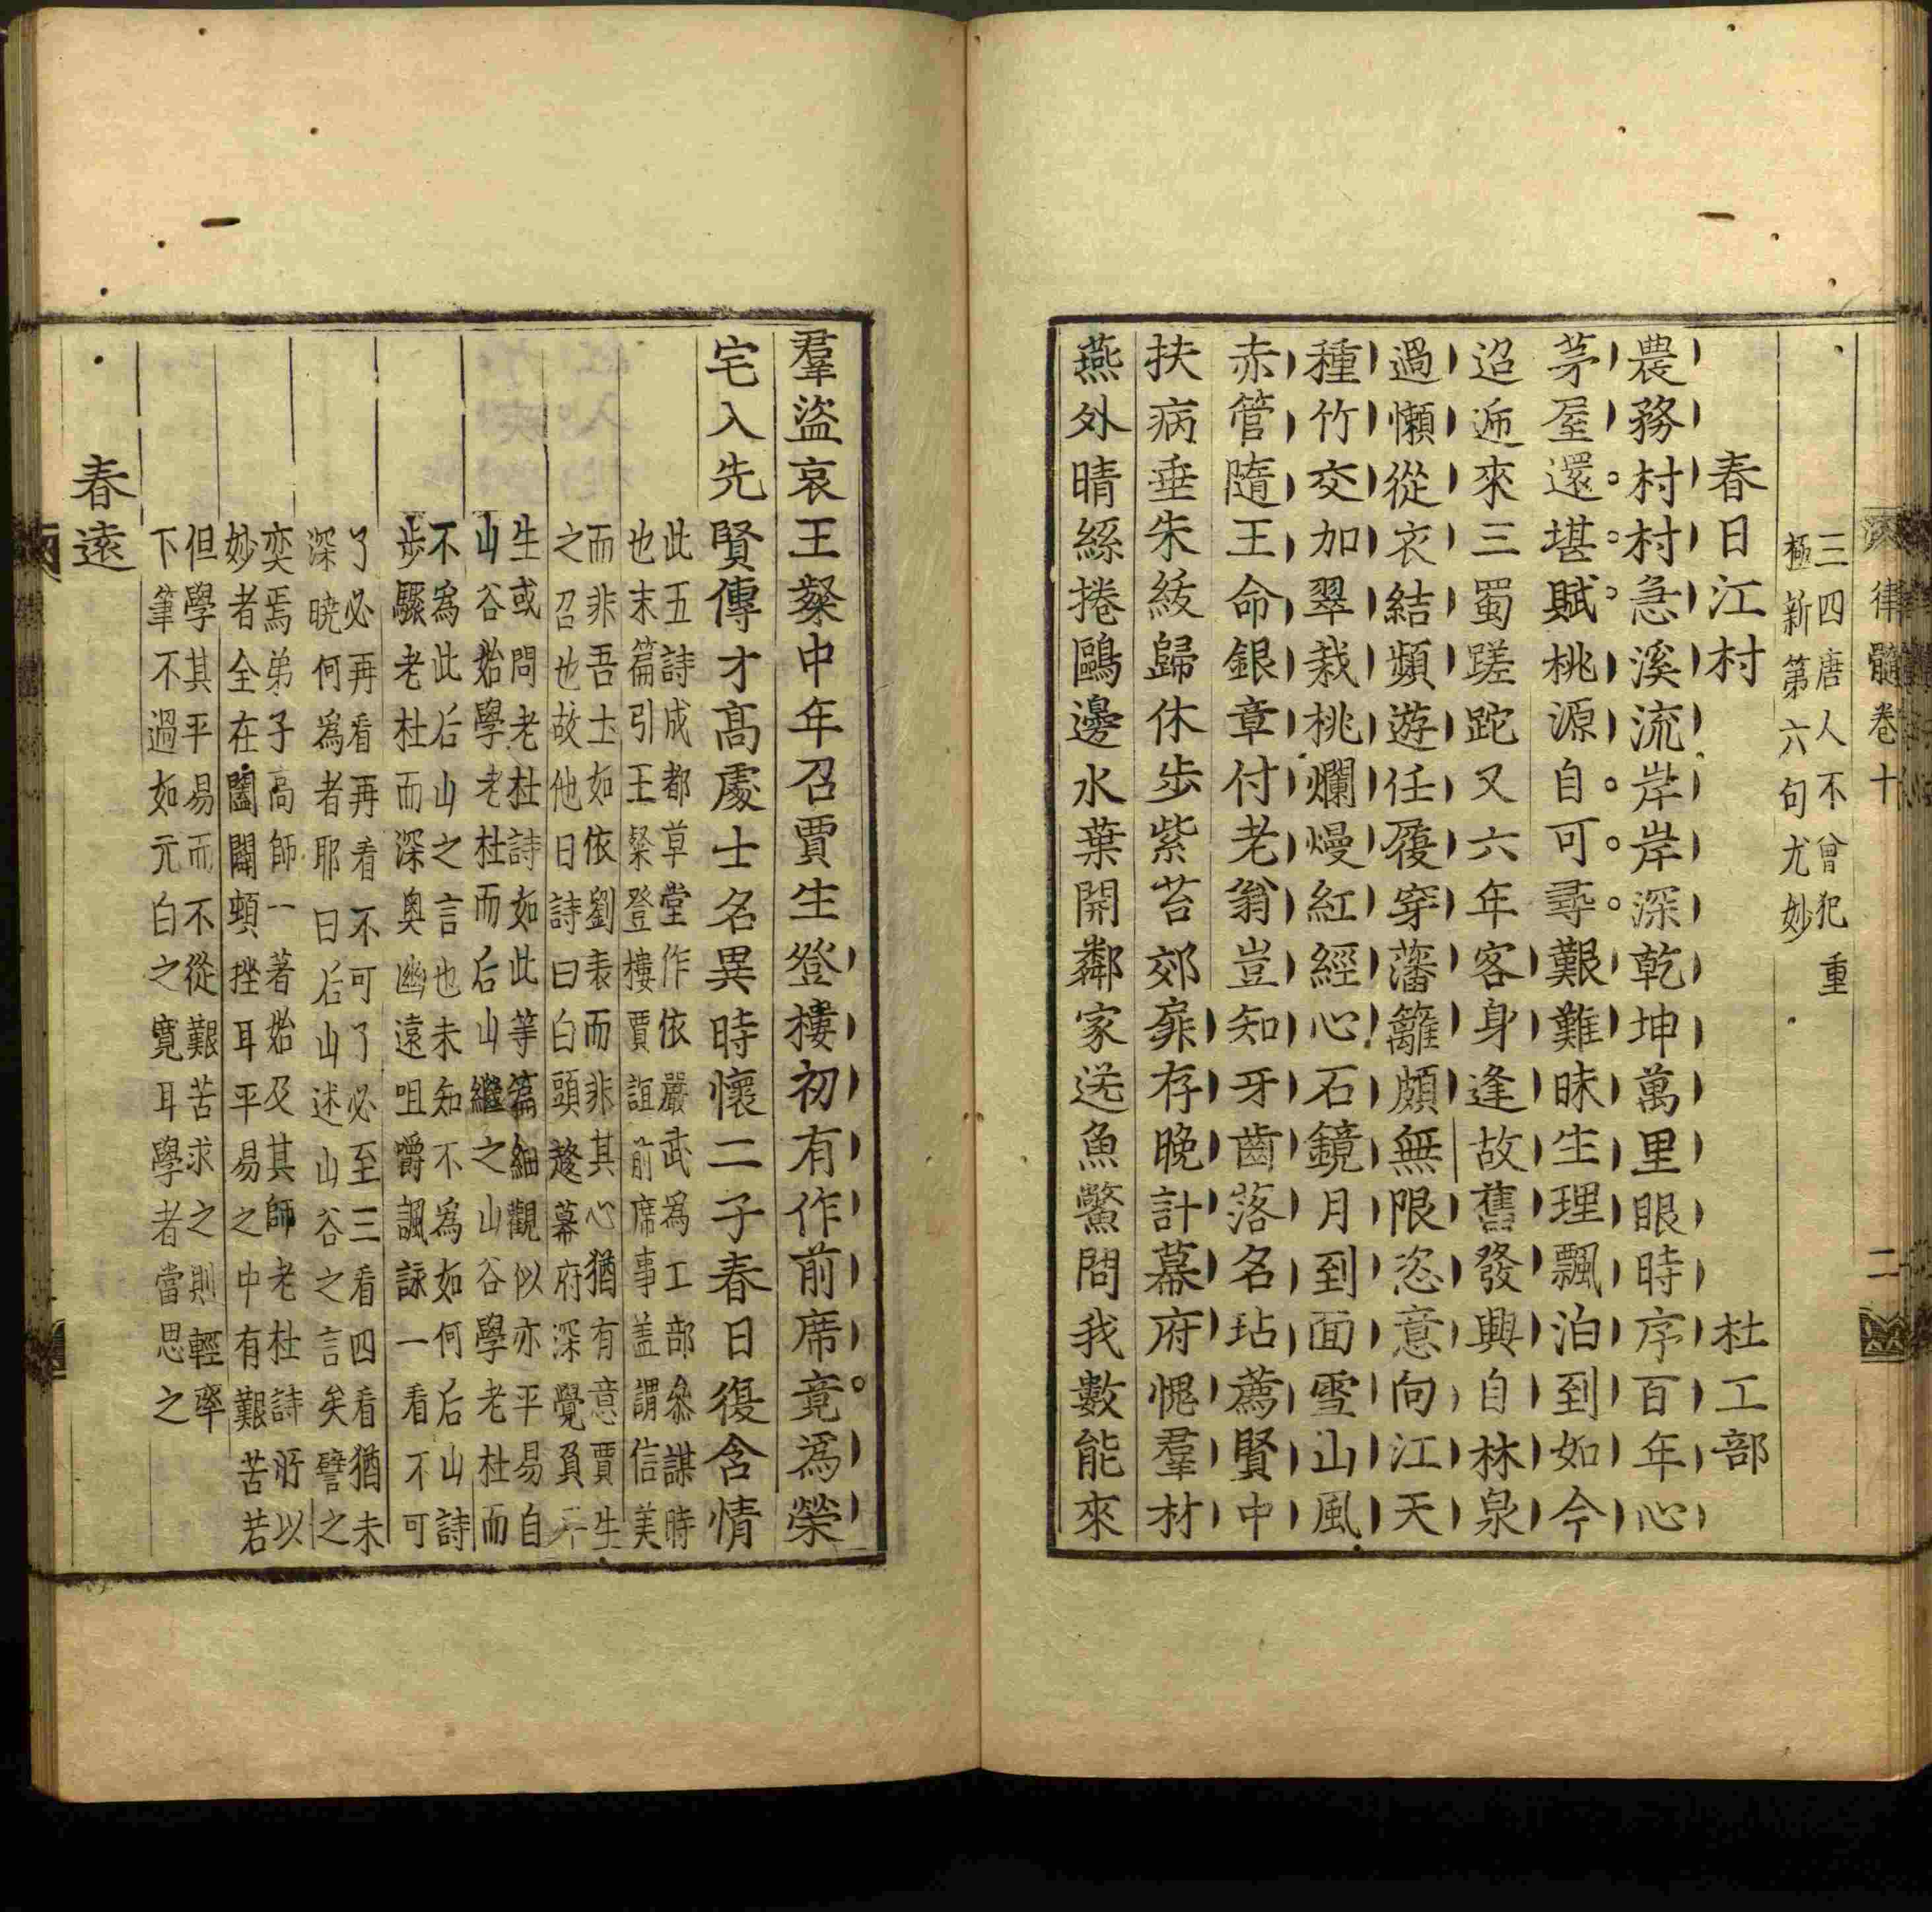 律髓卷十
二
三四唐人不曾犯重
極新第六句尤妙
春日江村 杜工部
農務村村急溪流岸岸深乾坤萬里眼時序百年心
茅屋還堪賦桃源自可尋艱難昧生理飄泊到如今
迢遞來三蜀蹉跎又六年客身逢故舊發興自林泉
過懶從衣結頻遊任履穿藩籬頗無限恣意向江天
種竹交加翠栽桃爛熳紅經心石鏡月到面雪山風
赤管隨王命銀章付老翁豈知牙齒落名玷薦賢中
扶病垂朱紱歸休步紫苔郊扉存晚計幕府愧羣材
燕外晴絲捲鷗邊水葉開鄰家送魚鱉問我數能來
羣盜哀王粲中年召賈生登樓初有作前席竟爲榮
宅入先賢傳才髙處士名異時懷二子春日復含情
此五詩成都草堂作依嚴武爲工部叅謀時
也末篇引王粲登樓賈誼前席事盖謂信美
而非吾土如依劉表而非其心猶有意賈生
之召也故他日詩曰白頭趨幕府深覺負
生或問老杜詩如此等篇細觀似亦平易自
山谷始學老杜而后山繼之山谷學老杜而
不爲此后山之言也未知不爲如何后山詩
步驟老杜而深奥幽遠咀嚼諷詠一看不可
了必再看再看不可了必至三看四看猶未
深曉何爲者耶曰后山述山谷之言矣譬之
奕焉弟子高師一著始及其師老杜詩所以
妙者全在闔闢頓挫耳平易之中有艱苦若
但學其平易而不從艱苦求之則輕率
下筆不過如元白之寛耳學者當思之
春遠